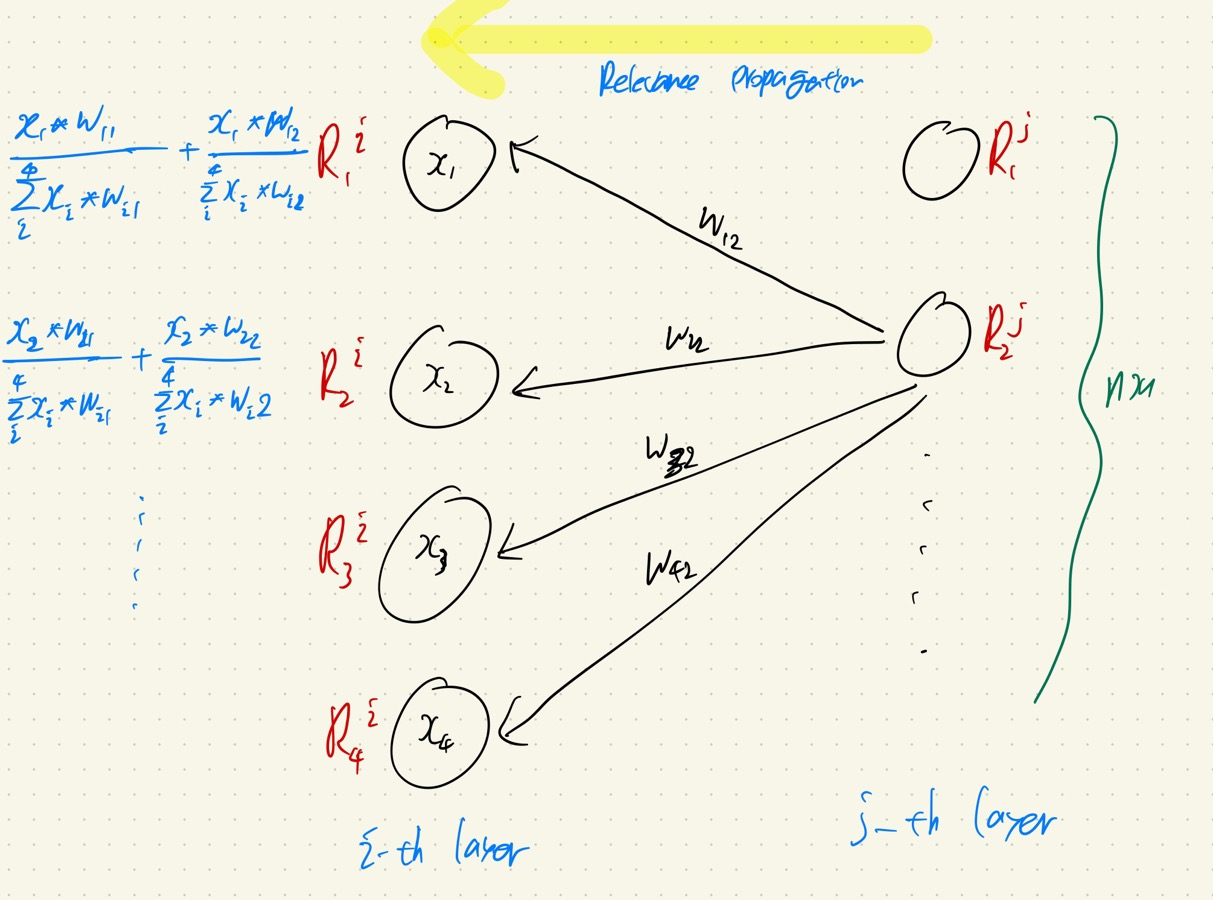 Relevance propagation
x₁ * w₁₁ / ∑ᵢ⁴ xᵢ * wᵢ₁ + x₁ * w₁₂ / ∑ᵢ⁴ xᵢ * wᵢ₂
R₁ⁱ
x₁
R₁ʲ
w₁₂
x₂ * w₂₁ / ∑ᵢ⁴ xᵢ * wᵢ₁ + x₂ * w₂₂ / ∑ᵢ⁴ xᵢ * wᵢ2
R₂ⁱ
x₂
w₂₂
R₂ʲ
w₃₂
R₃ⁱ
x₃
w₄₂
R₄ⁱ
x₄
i-th layer
j-th layer